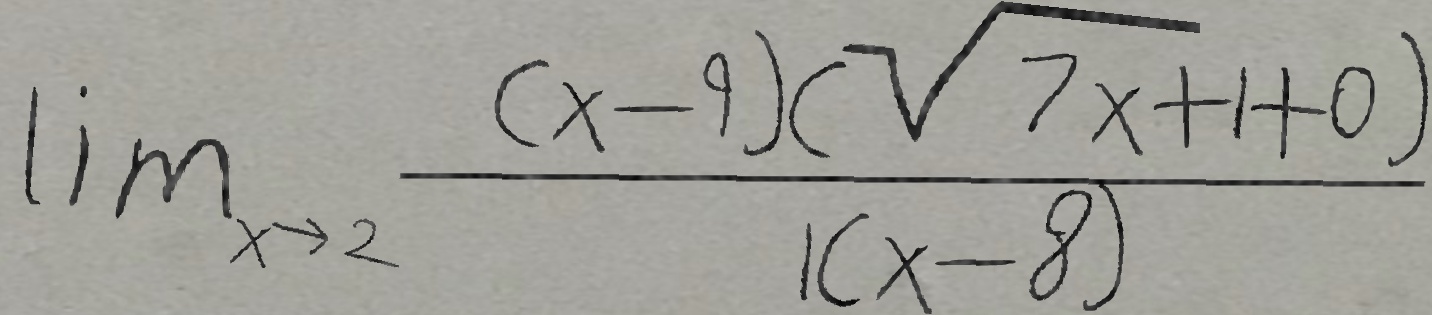 \lim_{x \to 2} \frac{(x-9)(\sqrt{7x+1}+0)}{1(x-8)}